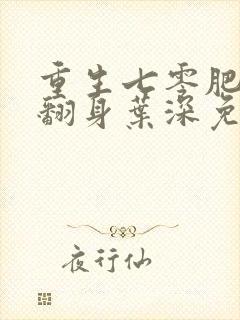 重生七零肥
翻身葉深免
夜行仙